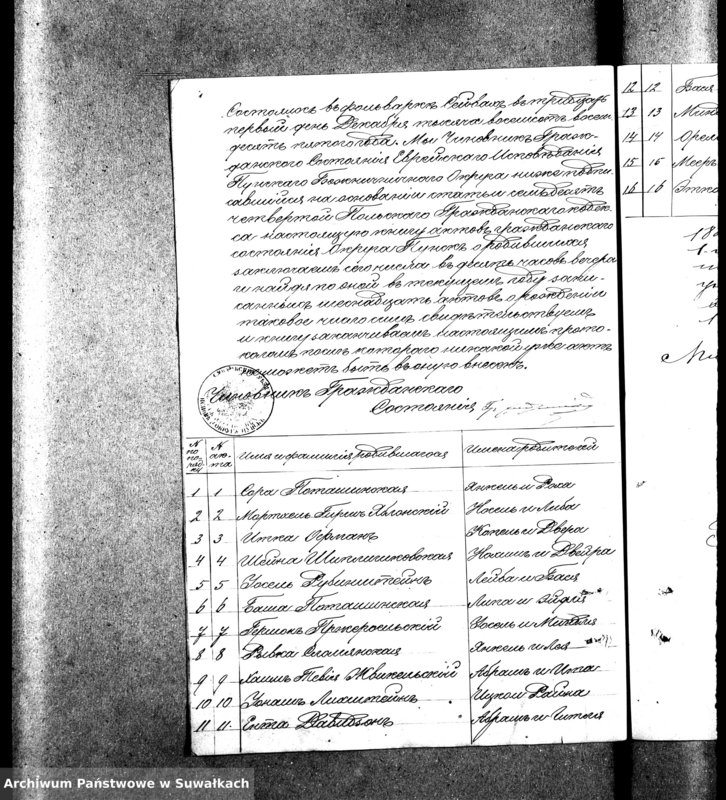 Состоялось въ фольваркѣ Сейвахъ въ тридцать
первый день Декабря тысяча восемьсотъ восемь
десятъ пятого года. Мы Чиновникъ Граж-
данского Состоянія Еврейского Исповѣданія
Пунского Божничнаго Округа нижеподпи
савшійся на основаніи статьи семьдесятъ
четвертой Польскаго Гражданскаго кодек-
са настоящую книгу актовъ гражданскаго
состоянія Округа Пунскъ о родившихся
заключаемъ сего числа въ десять часовъ вечера
и найдя по оной въ текущемъ году запи-
санныхъ шестнадцать актовъ о рожденіи
таковое число симъ свидѣтельствуемъ
и книгу заканчиваемъ настоящимъ прото-
коломъ послѣ котораго никакой уже актъ
не можетъ быть въ оную внесенъ.
Чиновникъ Гражданскаго
Состоянія
N по порядку N акта Имя и фамилія родившагося Имена родителей
1 1 Сора Поташинская Янкель и Роха
2 2 Мортхель Гиршъ Яблонскій Носель и Либа
3 3 Итка Остманъ Копель и Двера
4 4 Шейна Шиплишковская Ноаимъ и Двейра
5 5 Іосель Рубинштейнъ Лейба и Бася
6 6 Баша Поташинская Липа и
7 7 Гершонъ Пржеросльскій Іосель и
8 8 Рывка Сломянская Янкель и Лея
9 9 Хаимъ Тевія Жвикельскій Абрамъ и Ита
10 10 Іонашъ Лихштейнъ Ицко и Райна
11 11 Ента Давидсонъ Абрамъ и
12 12 Бася
13 13
14 14
15 15 Мееръ
16 16 Этка
Archiwum Państwowe w Suwałkach